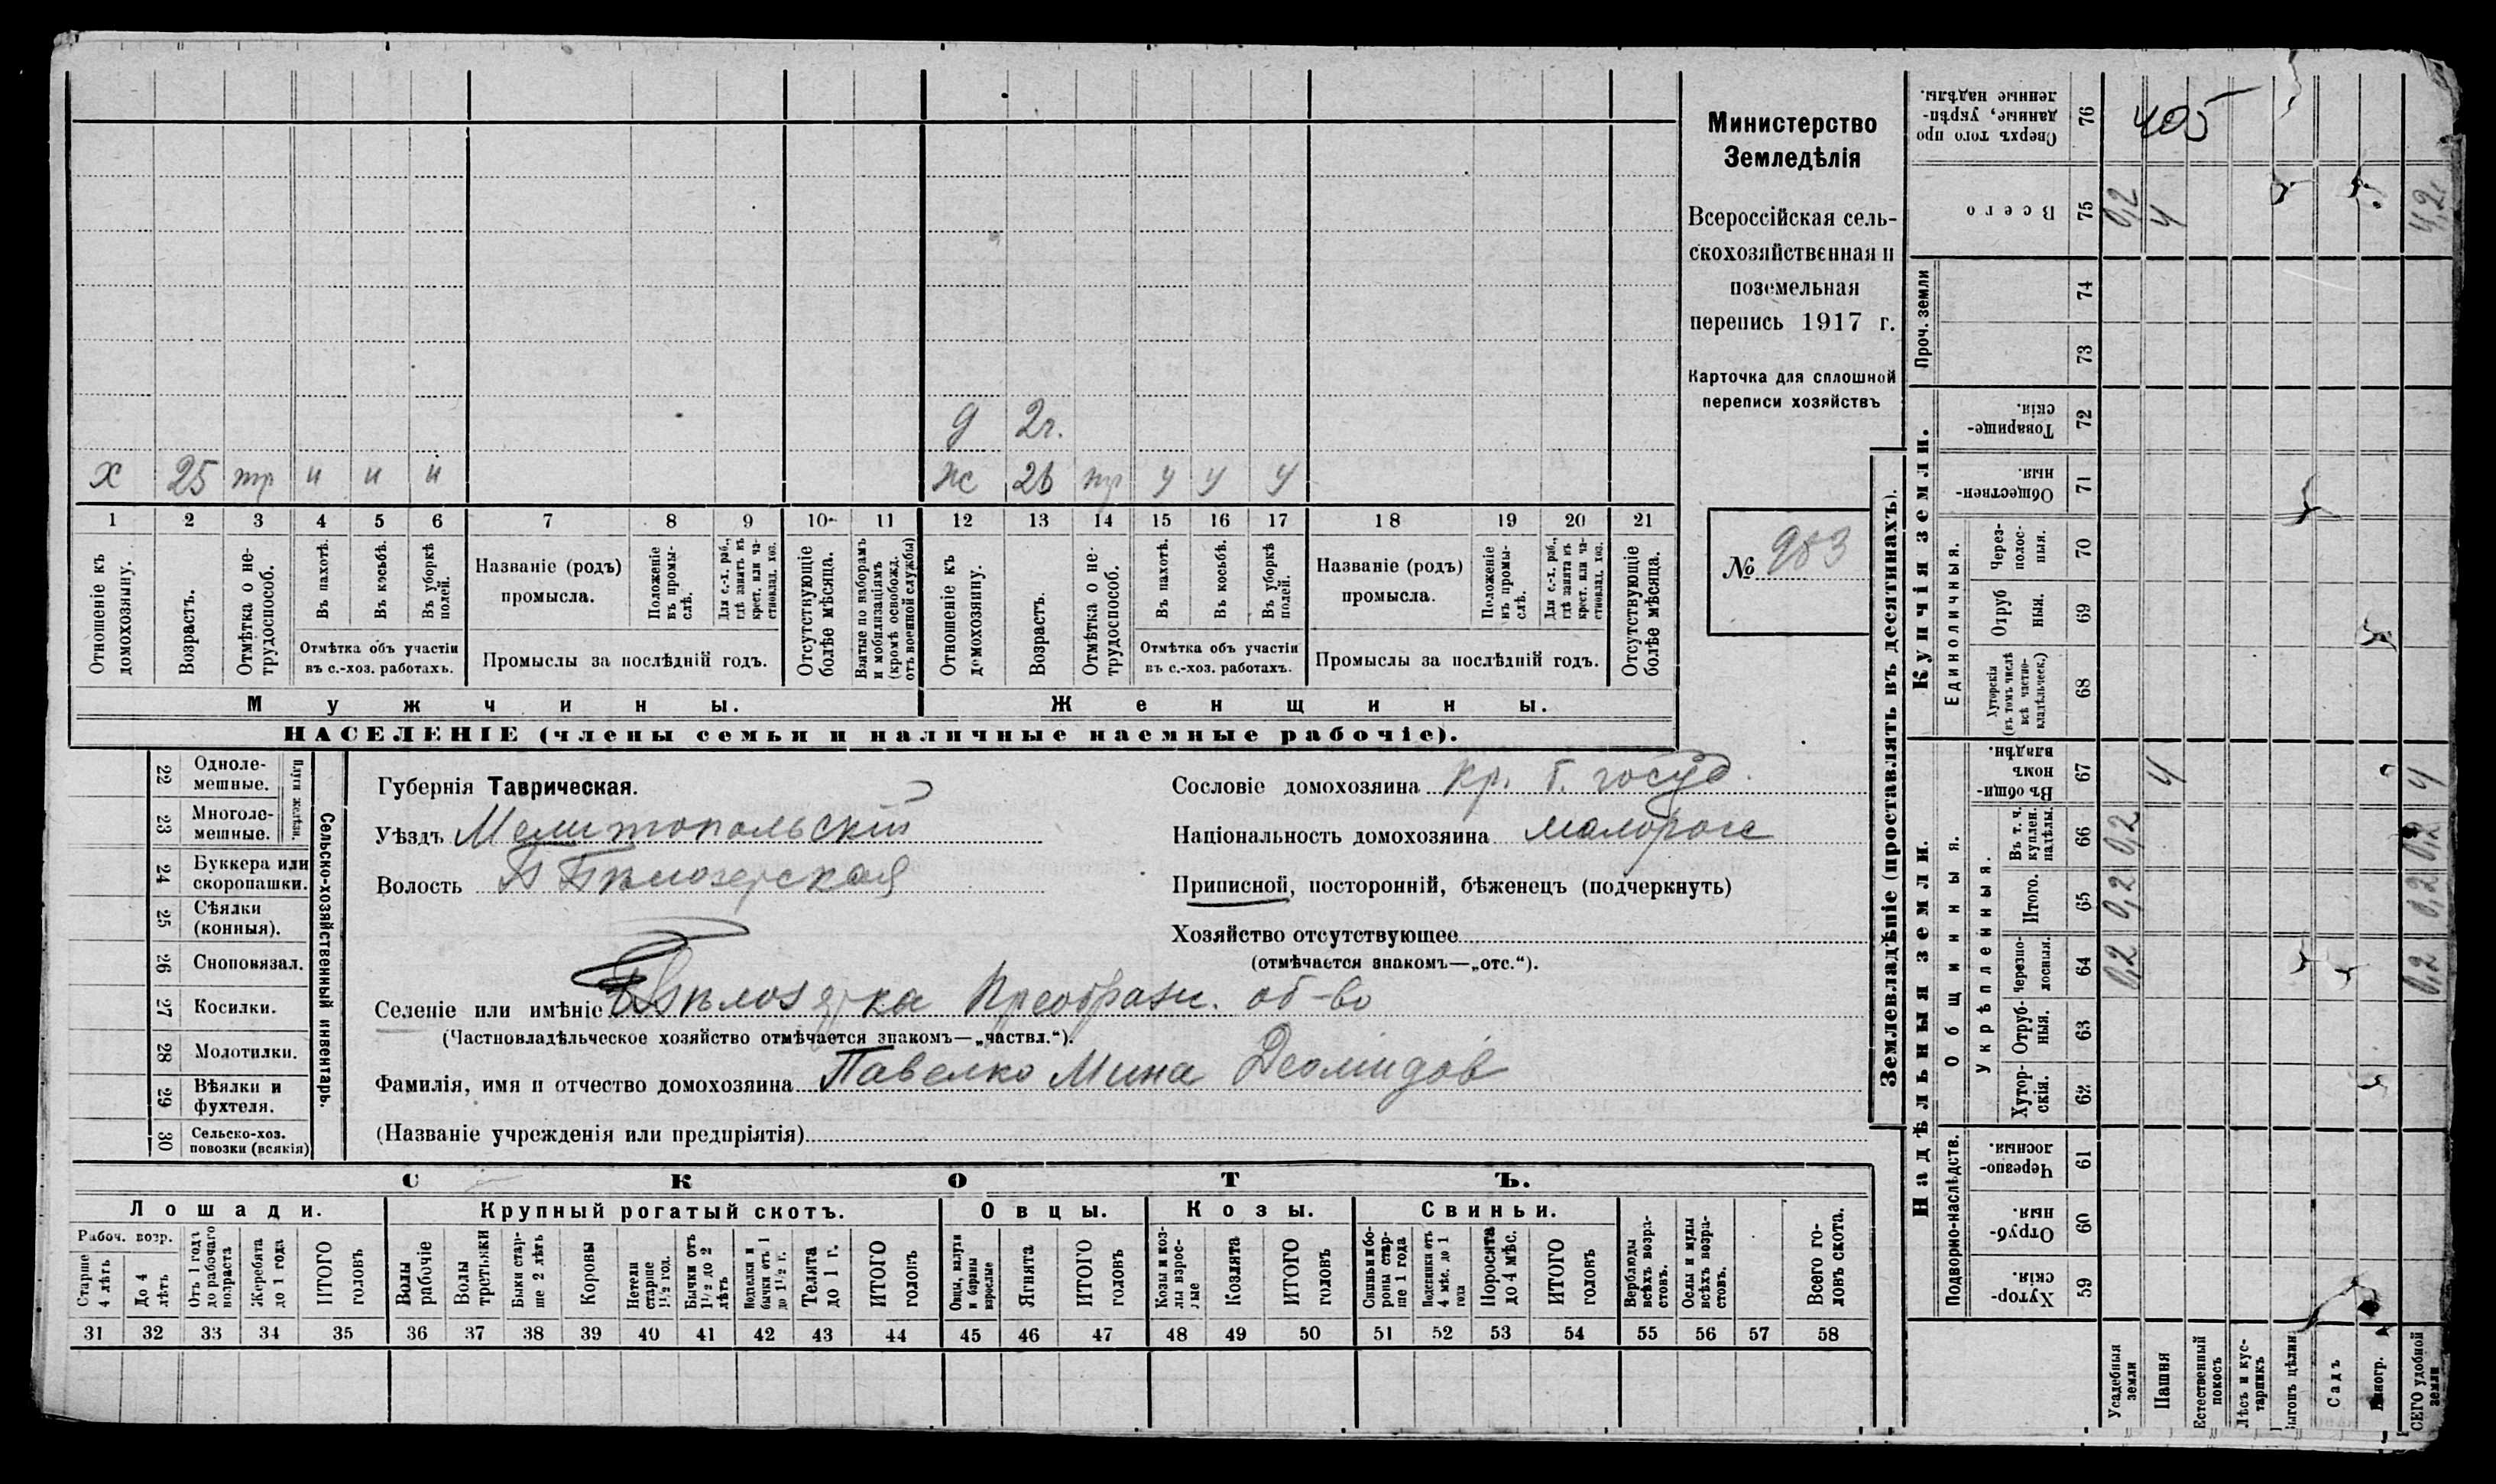 Министерство
Земледѣлія
Всероссійская сель-
скохозяйственная и
поземельная
перепись 1917 г.
Карточка для сплошной
переписи хозяйствъ
№ 983
д 2г.
х 25 тр и и и
ж 26 тр у у у
1 2 3 4 5 6 7 8 9 10 11 12 13 14 15 16 17 18 19 20 21
Отношеніе къ домохозяину.
Возрастъ.
Отмѣтка о не-трудоспособ.
Въ пахотѣ.
Въ косьбѣ.
Въ уборкѣ полей.
Отмѣтка объ участіи
въ с.-хоз. работахъ.
Названіе (родъ)
промысла.
Положеніе въ промы-слѣ.
Для с.-х. раб., гдѣ занятъ въ крест. или ча-стновлад. хоз.
Промыслы за послѣдній годъ.
Отсутствующіе болѣе мѣсяца.
Взятые по наборамъ и мобилизаціямъ (кромѣ освобожд. отъ военной службы)
Отношеніе къ домохозяину.
Возрастъ.
Отмѣтка о не-трудоспособ.
Въ пахотѣ.
Въ косьбѣ.
Въ уборкѣ полей.
Отмѣтка объ участіи
въ с.-хоз. работахъ.
Названіе (родъ)
промысла.
Положеніе въ промы-слѣ.
Для с.-х. раб., гдѣ занята въ крест. или ча-стновлад. хоз.
Промыслы за послѣдній годъ.
Отсутствующіе болѣе мѣсяца.
Мужчины. Женщины.
НАСЕЛЕНІЕ (члены семьи и наличные наемные рабочіе).
Сельско-хозяйственный инвентарь.
Плуги желѣзн.
22 Одноле-мешные.
23 Многоле-мешные.
24 Буккера или скоропашки.
25 Сѣялки (конныя).
26 Сноповязал.
27 Косилки.
28 Молотилки.
29 Вѣялки и фухтеля.
30 Сельско-хоз. повозки (всякія)
Губернія Таврическая.
Уѣздъ Мелитопольскій
Волость Б Бѣлозерская
Сословіе домохозяина кр. б. госуд.
Національность домохозяина малоросс
Приписной, посторонній, бѣженецъ (подчеркнуть)
Хозяйство отсутствующее
(отмѣчается знакомъ—„отс.“).
Селеніе или имѣніе Бѣлозерка Преображ. об-во
(Частновладѣльческое хозяйство отмѣчается знакомъ—„частвл.“).
Фамилія, имя и отчество домохозяина Павелко Мина Деомидов
(Названіе учрежденія или предпріятія)
СКОТЪ.
Лошади. Крупный рогатый скотъ. Овцы. Козы. Свиньи.
Рабоч. возр.
Старше 4 лѣтъ
До 4 лѣтъ
Отъ 1 года до рабочаго возраста
Жеребята до 1 года
ИТОГО головъ
Волы рабочіе
Волы третьяки
Быки стар-ше 2 лѣтъ
Коровы
Нетели старше 1 1/2 год.
Бычки отъ 1 1/2 до 2 лѣтъ
Подтелки и бычки отъ 1 до 1 1/2 г.
Телята до 1 г.
ИТОГО головъ
Овцы, валухи и бараны взрослые
Ягнята
ИТОГО головъ
Козы и коз-лы взрос-лые
Козлята
ИТОГО головъ
Свиньи и бо-ровы стар-ше 1 года
Подсвинки отъ 4 мѣс. до 1 года
Поросята до 4 мѣс.
ИТОГО головъ
Верблюды всѣхъ возра-стовъ.
Ослы и мулы всѣхъ возра-стовъ.
Всего го-ловъ скота.
31 32 33 34 35 36 37 38 39 40 41 42 43 44 45 46 47 48 49 50 51 52 53 54 55 56 57 58
Землевладѣніе (проставлять въ десятинахъ).
405
Сверхъ того про-данные, укрѣп-ленные надѣлы. 76
Всего 75 0,2 4 4,2
Проч. земли
74
73
Купчія земли.
Товарище-скія. 72
Обществен-ныя. 71
Единоличныя.
Через-полос-ныя. 70
Отруб-ныя. 69
Хуторскія (въ томъ числѣ всѣ частно-владѣльческ.) 68
Надѣльныя земли.
Общинныя.
Въ общи-номъ владѣн. 67 4 4
Укрѣпленныя.
Въ т. ч. куплен. надѣлы. 66 0,2 0,2
Итого. 65 0,2 0,2
Черезпо-лосныя. 64 0,2 0,2
Отруб-ныя. 63
Хутор-скія. 62
Подворно-наслѣдств.
Черезпо-лосныя. 61
Отруб-ныя. 60
Хутор-скія. 59
Усадебныя земли
Пашня
Естественный покосъ
Лѣсъ и кус-тарникъ
ыгонъ цѣлин
Садъ
иногр.
СЕГО удобной земли